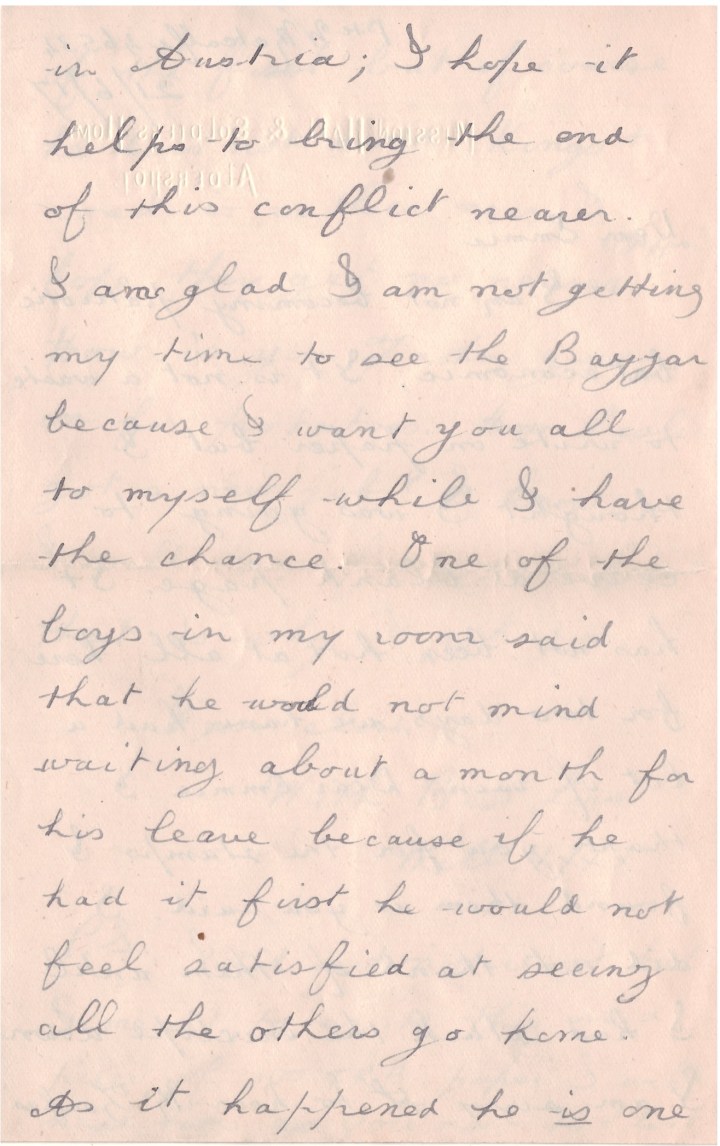 in Austria; I hope it
helps to bring the end
of this conflict nearer.
I am glad I am not getting
my time to see the Bazaar
because I want you all
to myself while I have
the chance. One of the
boys in my room said
that he would not mind
waiting about a month for
his leave because if he
had it first he would not
feel satisfied at seeing
all the others go home.
As it happened he is one